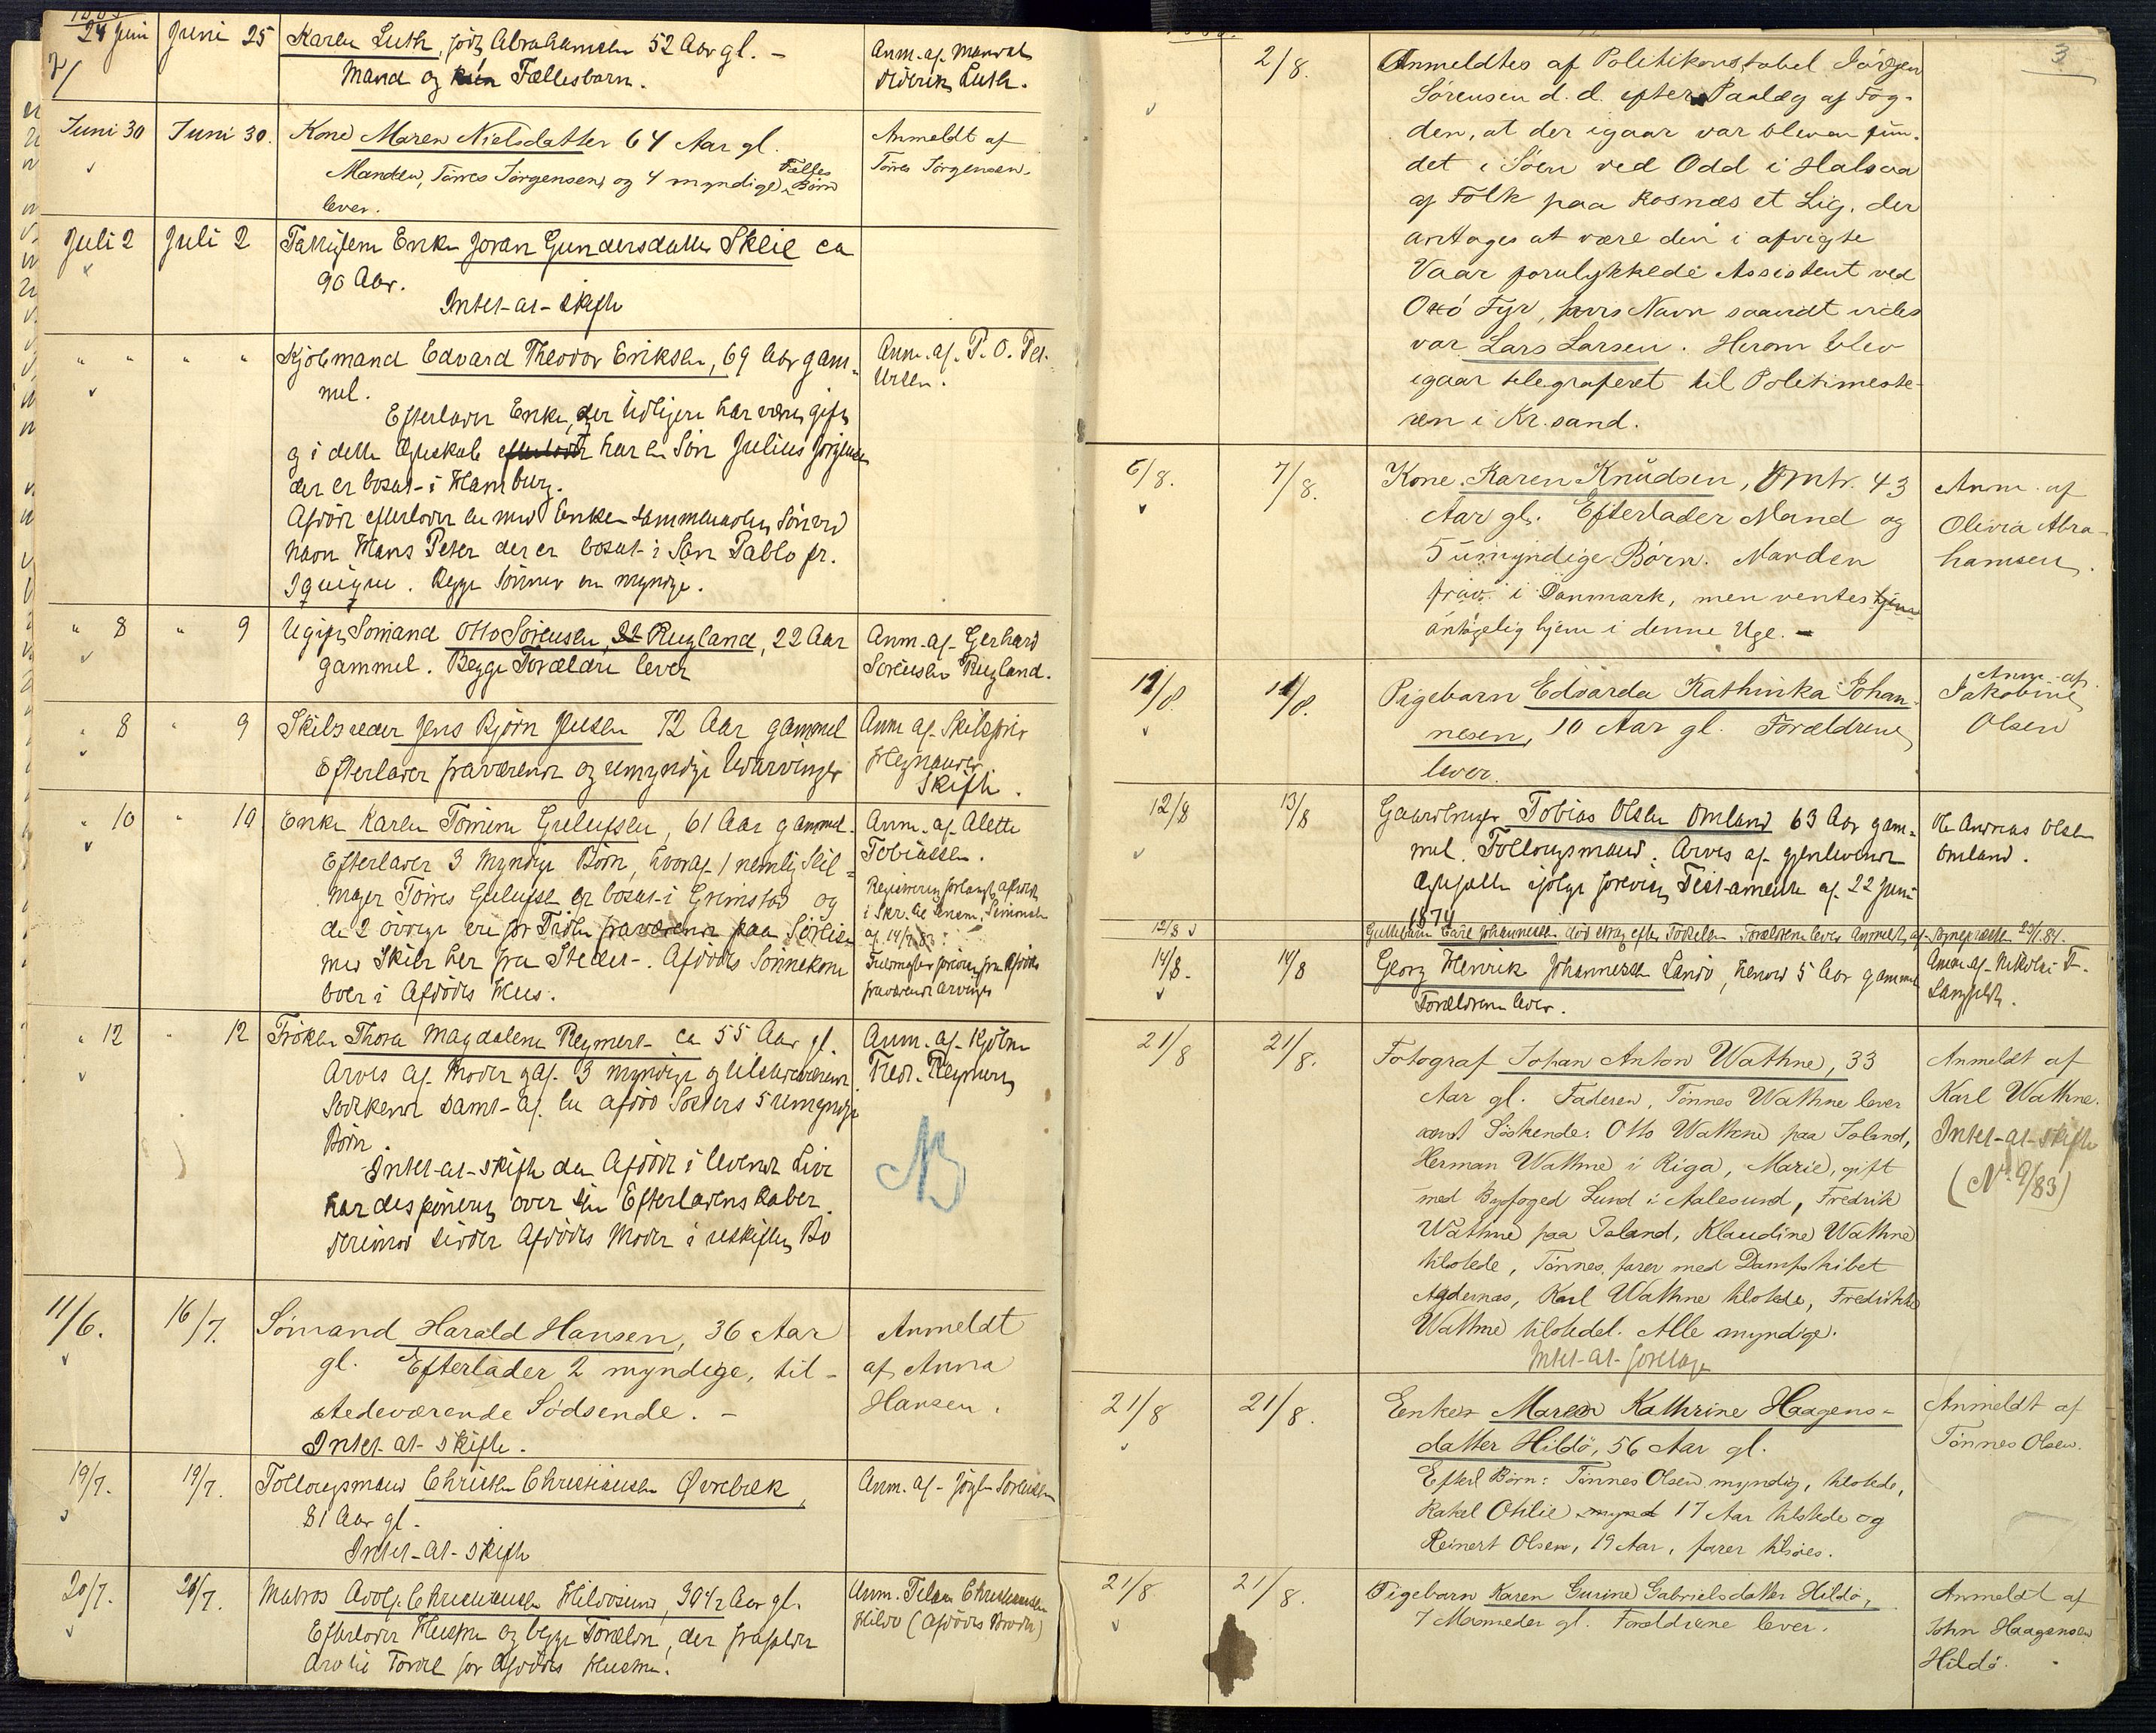 24 Juni Juni 25 Karen Luth, født Abrahamsen 52 Aar gl. - Anm. af Manden
Mand og Fællesbarn. Diderik Luth.
Juni 30 Juni 30. Kone Maren Nielsdatter 64 Aar gl. Anmeldt af
Manden, Tørres Jørgensen, og 4 myndige Fælles Børn Tørres Jørgensen.
lever.
Juli 2 Juli 2 Enke Joran Gundersdatter Skeie ca
90 Aar.
Intet at skifte
" " " " Kjøbmand Edvard Theodor Eriksen, 69 Aar gam- Anm. af P. O. Pet-
mel. ersen.
Efterlader Enke, der tidligere har været gift
og i dette Ægteskab har en Søn Julius Jørgensen
der er bosat i Hamburg.
Afdøde efterlader en med Enken sammenavlet Søn ved
Navn Hans Peter der er bosat i San Pablo pr.
Iquique. Begge Sønner ere myndige.
" 8 " 9 Ugift Sømand Otto Sørensen, Rugland, 22 Aar Anm. af Gerhard
gammel. Begge Forældre lever Sørensen Rugland.
" 8 " 9 Skibsreder Jens Bjørn Jensen 72 Aar gammel Anm af Skibsfører
Efterlader fraværende og umyndige Udarvinger
Skifte.
" 10 " 10 Enke Karen Tomine Gulufsen, 61 Aar gammel. Anm. af Alette
Efterlader 3 myndige Børn, hvoraf 1 nemlig Seil- Tobiassen.
mager Tørres Gulufsen er bosat i Grimstad og
de 2 øvrige ere for Tiden fraværende paa Søreise
med Skibe her fra Stedet. Afdødes Sønnekone
boer i Afdødes Hus. fraværende Arvinger
" 12 " 12 Frøken Thora Magdalena Reymert ca 55 Aar gl. Anm. af Kjøbm
Arves af Moder og af 3 myndige og tilstedeværende Fredr. Reymert
Sødskende samt af en afdød Søsters 5 umyndige
Børn.
Intet at skifte da Afdøde i levende Live
har disponeret over sine Efterladenskaber.
Derimod sidder Afdødes Moder i uskiftet Bo
11/6. 16/7. Sømand Harald Hansen, 36 Aar Anmeldt
gl. Efterlader 2 myndige, til- af Anna
stedeværende Sødsende. - Hansen.
Intet at skifte.
19/7. 19/7. Follougsmand Christen Christiansen Øvrebæk, Anm. af Jørgen Sørensen
81 Aar gl.
Intet at skifte
20/7. 20/7. Matros Adolf Christiansen Hildøsund, 30 1/2 Aar gl. Anm. Christiansen
Efterlader Hustru og begge Forældre, der frafalder Hildø (Afdødes Broder)
Arv til Fordel for Afdødes Hustru.
3
2/8. Anmeldtes af Politikonstabel Jørgen
Sørensen d. d. efter Paalæg af Fog-
den, at der igaar var bleven fun-
det i Søen ved Odd i Halsaa
af Folk paa Rosnæs et Lig, der
antages at være den i afvigte
Vaar forulykkede Assistent ved
Oxö Fyr, hvis Navn saavidt vides
var Lars Larsen. Herom blev
igaar telegraferet til Politimeste-
ren i Kr.sand.
6/8. 7/8. Kone Karen Knudsen, Omtr. 43 Anm. af
Aar gl. Efterlader Mand og Olivia Abra-
5 umyndige Børn. Manden hamsen.
frav. i Danmark, men ventes
antagelig hjem i denne Uge. -
11/8 11/8. Pigebarn Edvarda Kathinka Johan- Anm. af
nesen, 10 Aar gl. Forældrene Jakobine
lever. Olsen
12/8 13/8 Gaardbruger Tobias Olsen Omland 63 Aar gam- Ole Andreas Olsen
mel. Follougsmand. Arves af gjenlevende Omland.
Ægtefælle ifølge forevist Testamente af 22 Juni
1874
12/8 Guttebarn Carl Johannessen død strax efter Fødselen Forældrene lever
14/8. 14/8 Georg Henrik Johannesen Landø, henved 5 Aar gammel Anm. af Nikolai F.
Forældrene lever. Langfeldt.
21/8 21/8. Fotograf Johan Anton Wathne, 33 Anmeldt af
Aar gl. Faderen, Tønnes Wathne lever Karl Wathne.
samt Søskende: Otto Wathne paa Island, Intet at skifte
Herman Wathne i Riga, Marie, gift (No 9/83)
med Byfoged Lund i Aalesund, Fredrik
Wathne paa Island, Klaudine Wathne
tilstede, Tønnes, farer med Dampskibet
Agdernæs, Karl Wathne tilstede, Fredrikke
Wathne tilstedet. Alle myndige.
Intet at foretage
21/8 21/8. Enken Maren Kathrine Haagens- Anmeldt af
datter Hildö, 56 Aar gl. Tønnes Olsen.
Efterl Børn: Tønnes Olsen myndig, tilstede,
Rakel Otilie 17 Aar tilstede og
Reinert Olsen, 19 Aar, farer tilsöes.
21/8 21/8. Pigebarn Karen Gurine Gabrielsdatter Hildö, Anmeldt af
7 Maaneder gl. Forældrene lever. John Haagensen
Hildö.